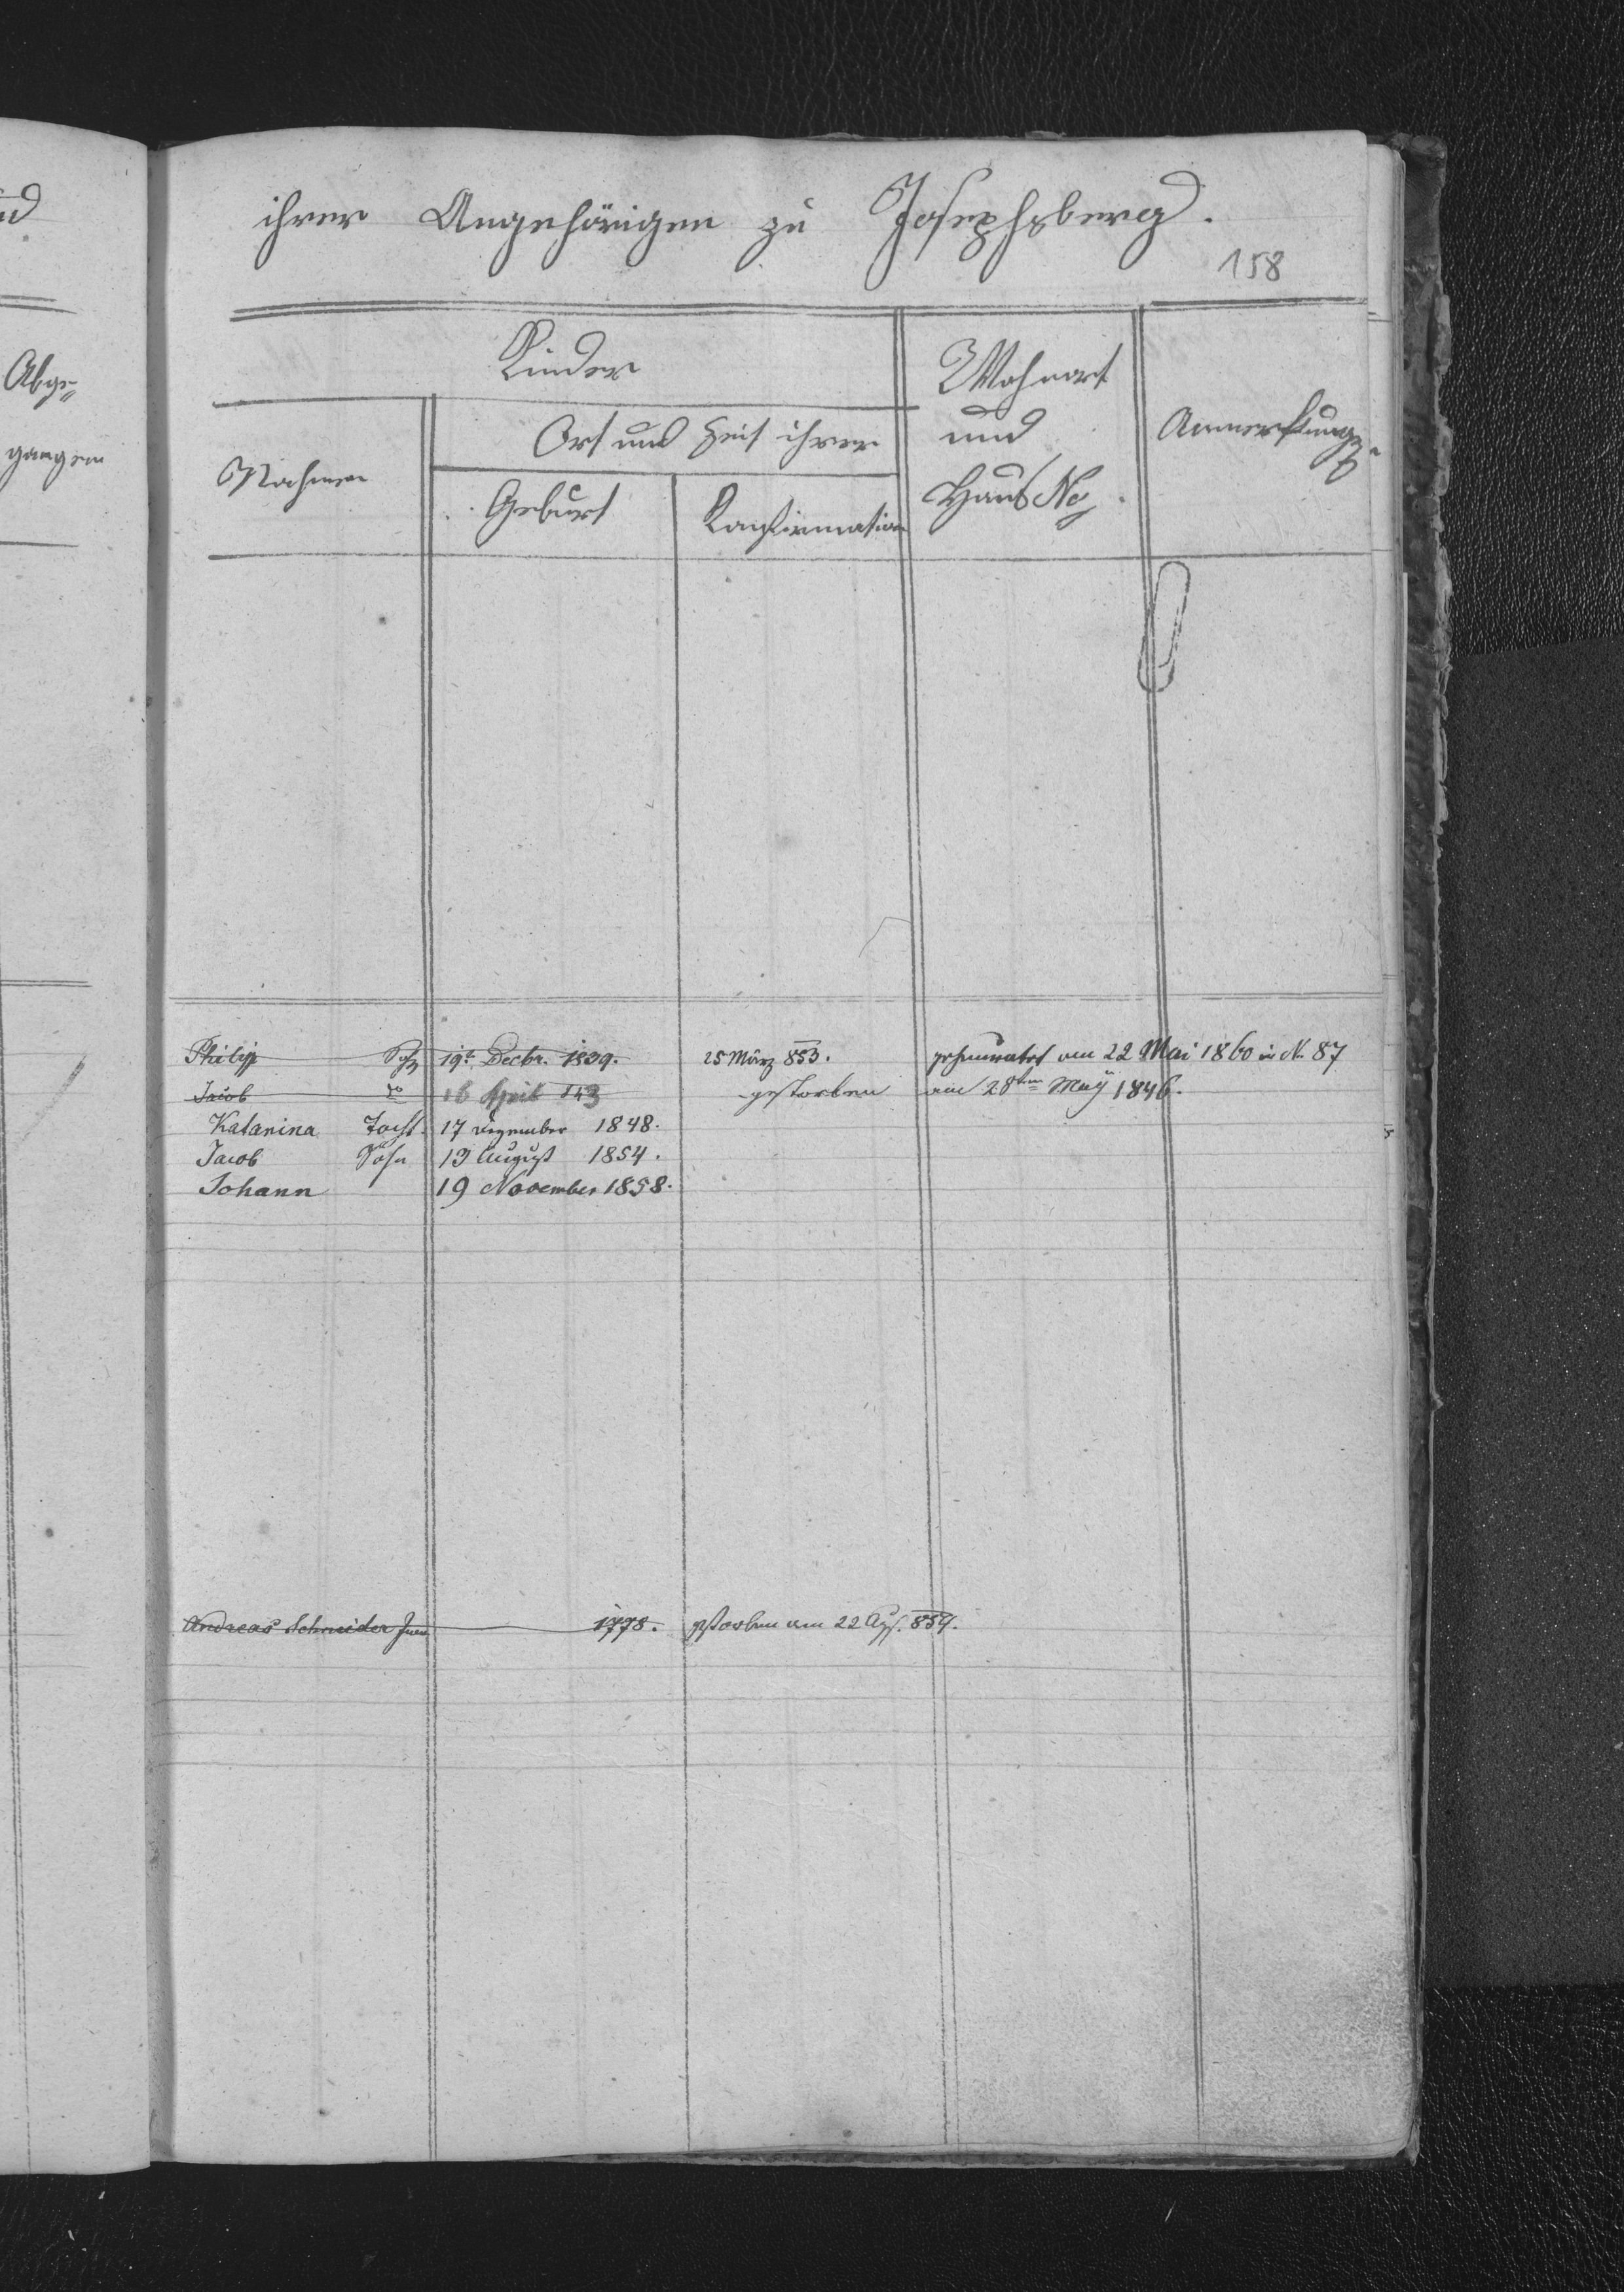 ihrer Angehörigen zu Josephsberg.
158
Abge-
gangen
Kinder
Wohnort
und
Haus No
Anmerkung
Nahmen
Ort und Zeit ihrer
Geburt
Konfirmation
Philipp Sohn 19t Decbr. 1839. 25 März 853. geheurathet am 22 Mai 1860 in N. 87
Jacob do 16 April 143 gestorben am 28ten Maÿ 1846.
Katarina Tocht. 17 Dezember 1848.
Jacob Sohn 13 August 1854.
Johann 19 November 1858.
Andreas Schneider 1778. gestorben am 22 859.